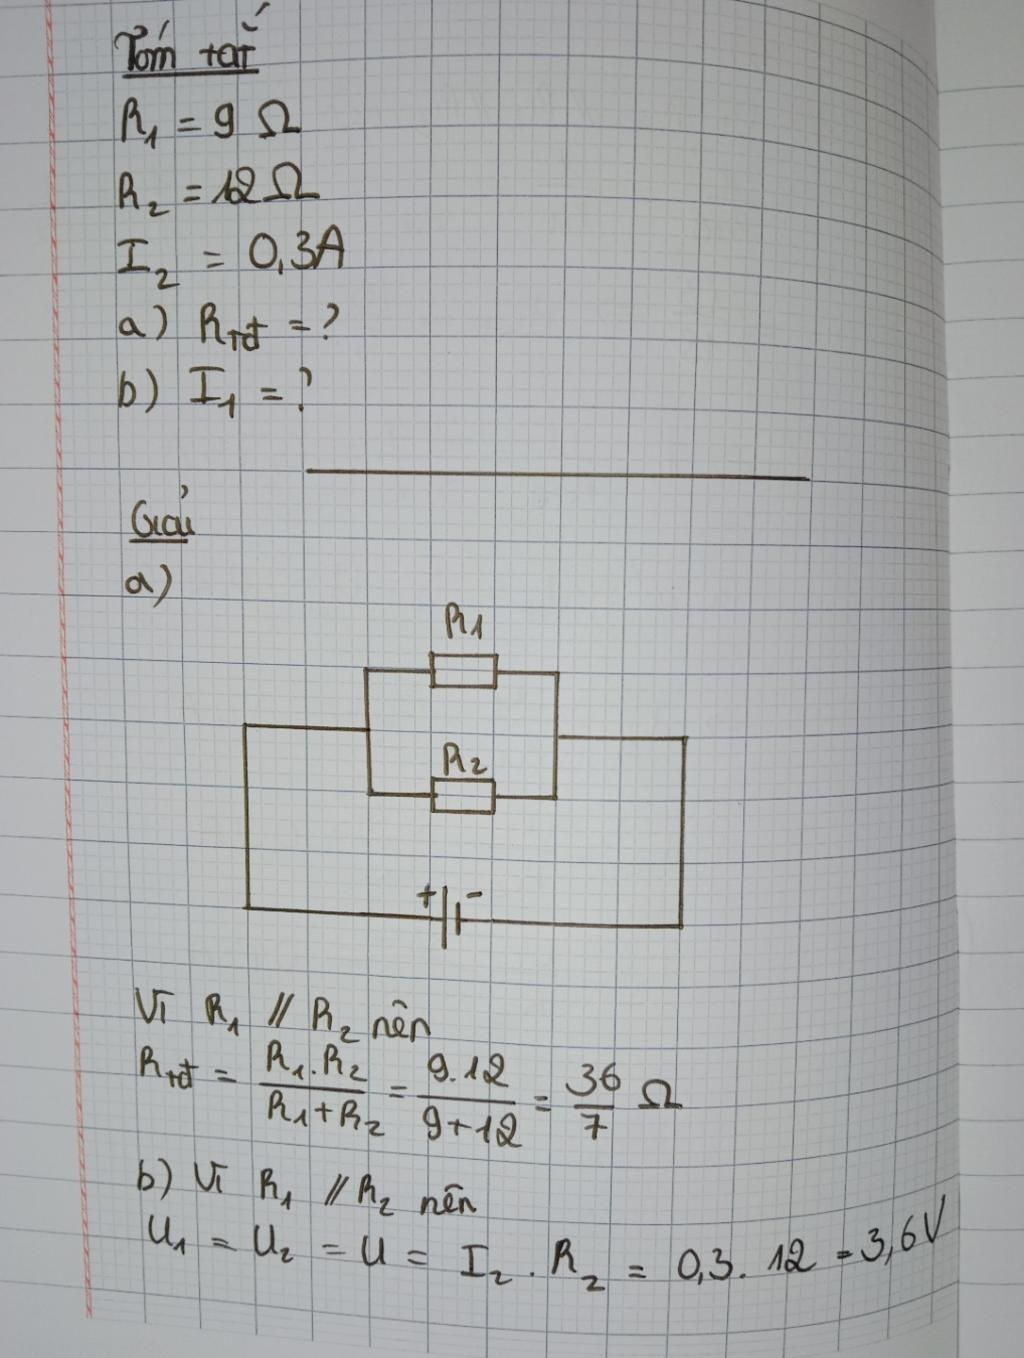 Tóm tắt
R₁ = 9 Ω
R₂ = 12 Ω
I₂ = 0,3A
a) Rtđ = ?
b) I₁ = ?
Giải
a)
R1
R2
+ -
Vì R₁ // R₂ nên
Rtđ = R₁.R₂ / R₁+R₂ = 9.12 / 9+12 = 36/7 Ω
b) Vì R₁ // R₂ nên
U₁ = U₂ = U = I₂ . R₂ = 0,3. 12 = 3,6V